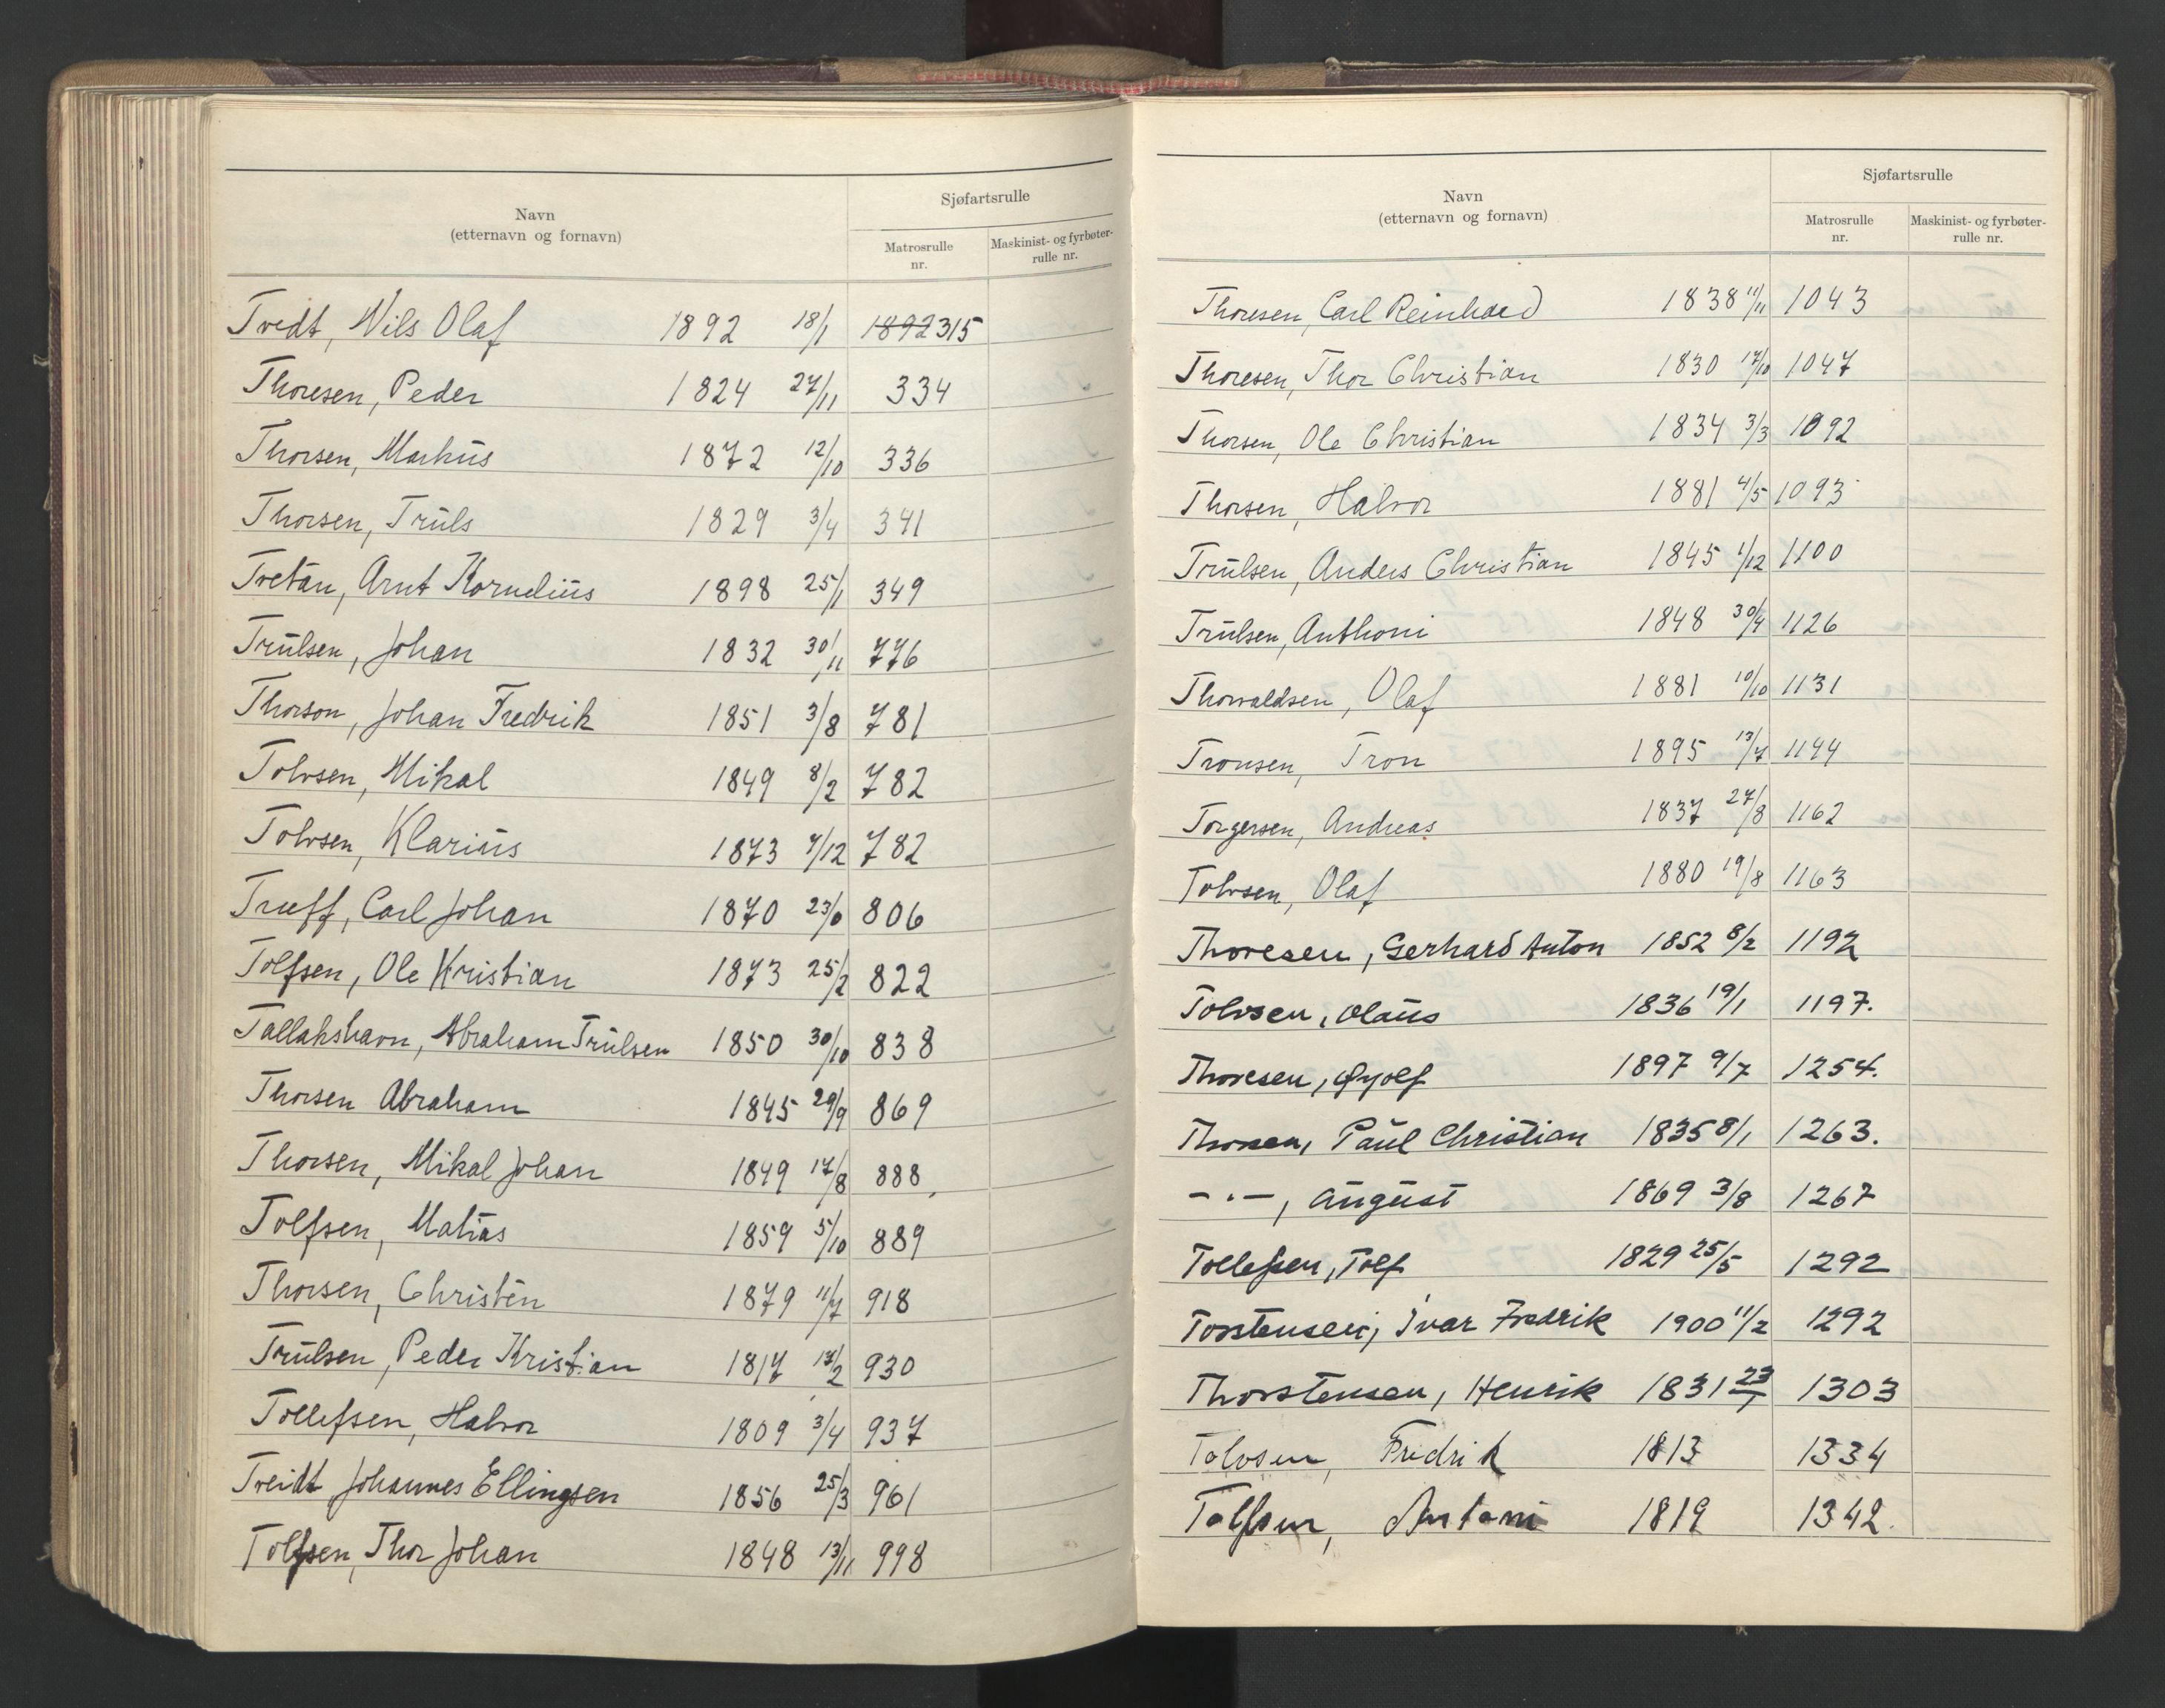 Navn
(etternavn og fornavn)
Sjøfartsrulle
Matrosrulle
nr.
Maskinist- og fyrbøter-
rulle nr.
Tvedt, Nils Olaf 1892 18/1 1892 315
Thoresen, Peder 1824 27/11 334
Thorsen, Markus 1872 12/10 336
Thorsen, Truls 1829 3/4 341
Tvetan, Arnt Kornelius 1898 25/1 349
Trulsen, Johan 1832 30/11 776
Thorson, Johan Fredrik 1851 3/8 781
Tolvsen, Mikal 1849 8/2 782
Tolvsen, Klarius 1873 7/12 782
Trueff, Carl Johan 1870 806
Tolfsen, Ole Kristian 1873 25/2 822
Tallakshavn, Abraham Trulsen 1850 30/10 838
Thorsen Abraham 1845 29/9 869
Thorsen, Mikal Johan 1849 17/8 888
Tolfsen, Matias 1859 5/10 889
Thorsen, Christen 1879 11/7 918
Trulsen, Peder Kristian 1817 930
Tollefsen, Halvor 1809 3/4 937
Tveidt Johannes Ellingsen 1856 25/3 961
Tolfsen, Thor Johan 1848 13/11 998
Navn
(etternavn og fornavn)
Sjøfartsrulle
Matrosrulle
nr.
Maskinist- og fyrbøter-
rulle nr.
Thoresen, Carl Reinhard 1838 11/11 1043
Thoresen, Thor Christian 1830 17/10 1047
Thorsen, Ole Christian 1834 3/3 1092
Thorsen, Halvor 1881 4/5 1093
Trulsen, Anders Christian 1845 1/12 1100
Trulsen, Anthoni 1848 30/4 1126
Thorvaldsen, Olaf 1881 10/10 1131
Tronsen, Tron 1895 13/7 1144
Torgersen, Andreas 1837 27/8 1162
Tolvsen, Olaf 1880 19/8 1163
Thoresen, Gerhard Anton 1852 8/2 1192
Tolvsen, Olaus 1836 19/1 1197.
Thoresen, Øyolf 1897 9/7 1254.
Thorsen, Paul Christian 1835 8/1 1263.
-"-, August 1869 3/8 1267
Tollefsen, Tolf 1829 25/5 1292
Torstensen, Ivar Fredrik 1900 11/2 1292
Thorstensen, Henrik 1831 1303
Tolvsen, Fredrik 1813 1334
Tolfsen, Antoni 1819 1342.